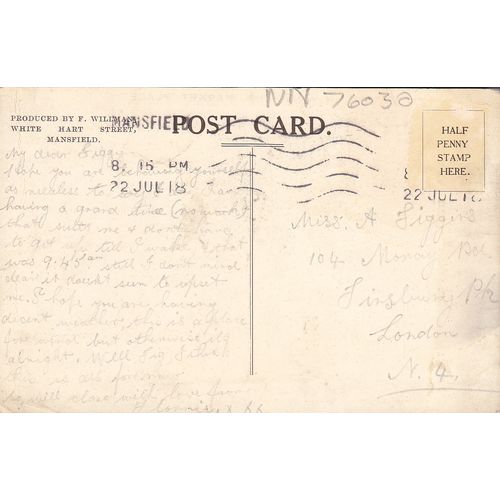 NN 76030
PRODUCED BY F. WILLMAN,
WHITE HART STREET,
MANSFIELD.
MANSFIELD
POST CARD.
HALF
PENNY
STAMP
HERE.
8. 15 PM
22 JUL 18
8
22 JUL 18
My dear
hope you are behaving yourself
as needless to say
having a grand time (no work)
that suits me & don't have
to get up till I wake & that
was 9.45am still I don't mind
dear it doesn't seem to upset
me. I hope you are having
decent weather, this is a place
for wind but otherwise its
alright. Well
this is all for now
so will close with love from
x xx
Miss. A Figgins
104 Monay
Finsbury Pk
London
N. 4.